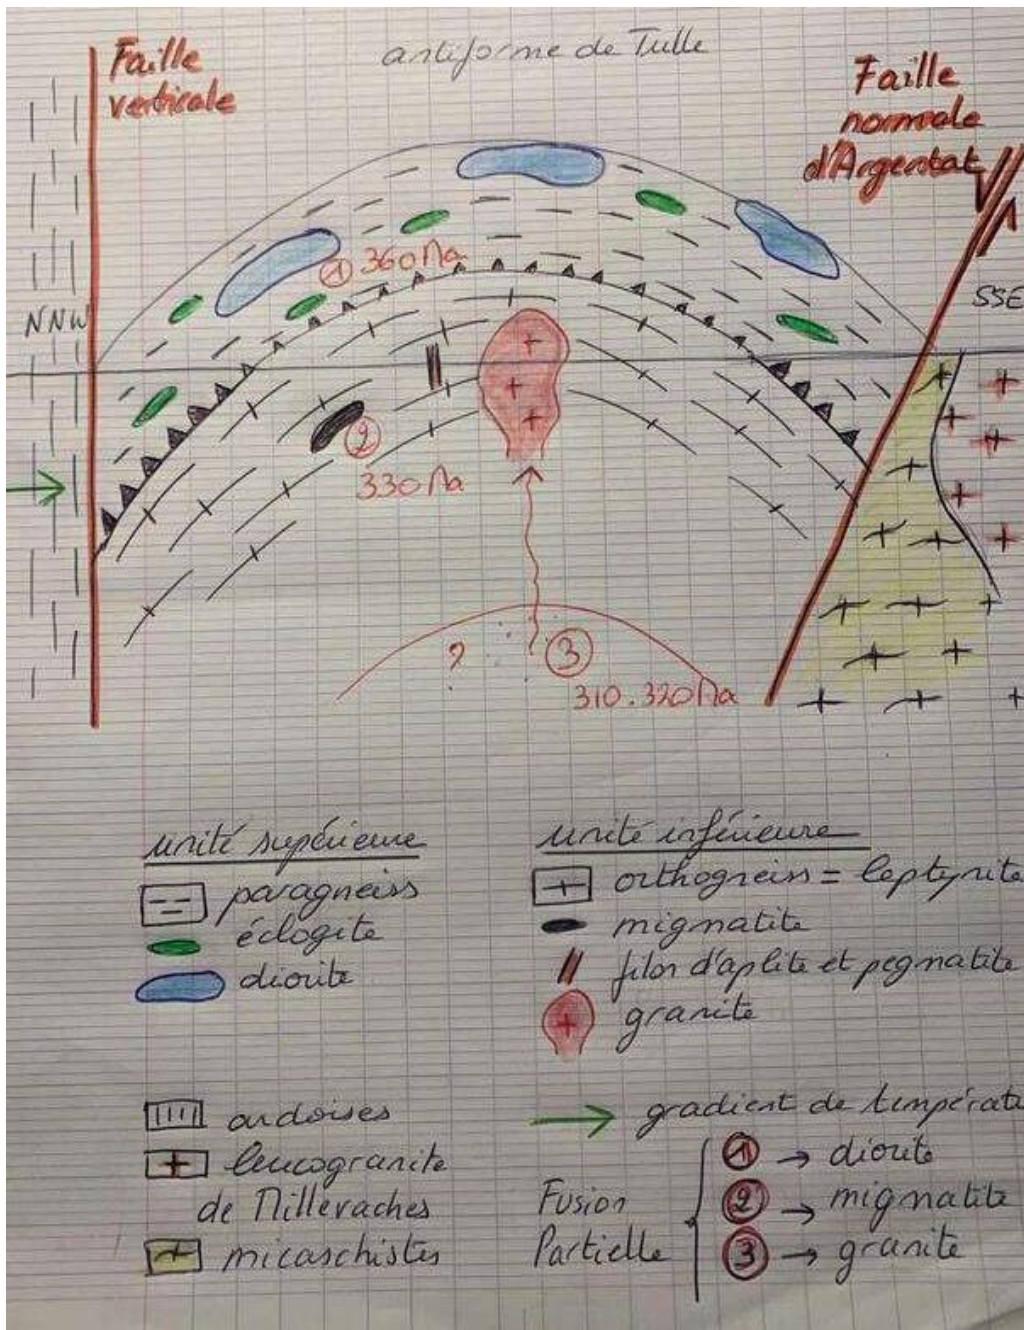 antiforme de Tulle
Faille
verticale
Faille
normale
d'Argentat
① 360 Ma
NNW
SSE
②
330 Ma
?
③
310.320 Ma
unité supérieure
paragneiss
éclogite
diorite
unité inférieure
orthogneiss = leptynite
migmatite
filon d'aplite et pegmatite
granite
ardoises
leucogranite
de Millevaches
micaschistes
gradient de températu
Fusion
Partielle
① → diorite
② → migmatite
③ → granite